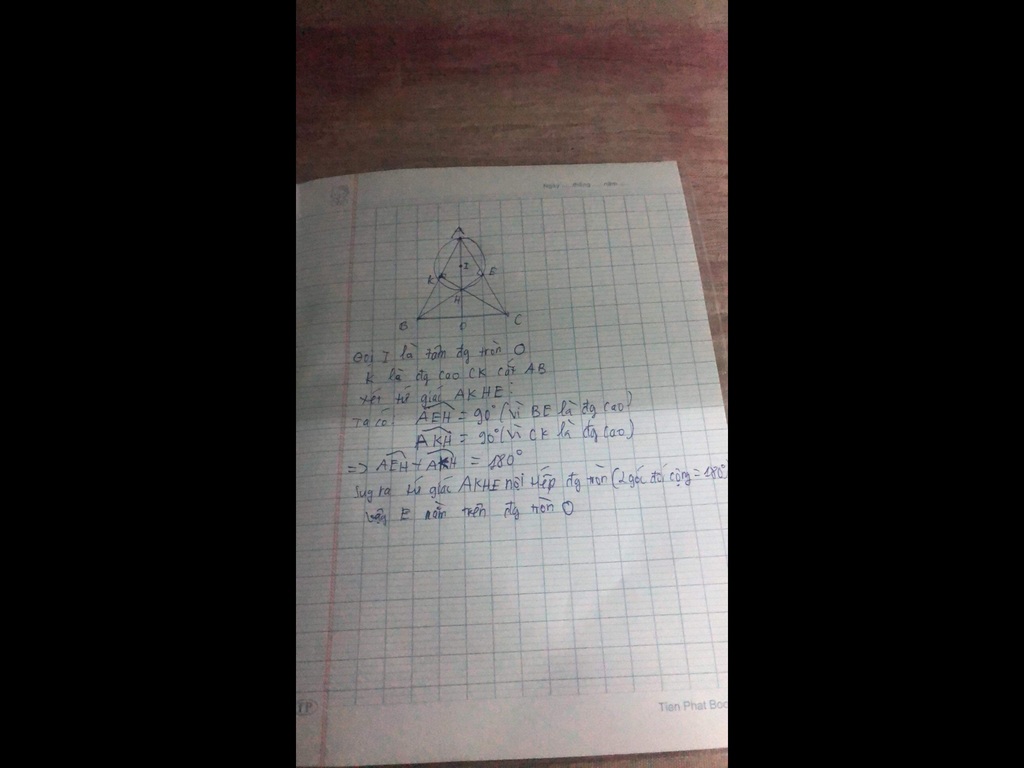 Ngày tháng năm
A
I
K E
H
B O C
Gọi I là tâm đg tròn O
K là đg cao CK cắt AB
Xét tứ giác AKHE:
Ta có: AEH = 90° (vì BE là đg cao)
AKH = 90° (vì CK là đg cao)
=> AEH + AKH = 180°
Suy ra tứ giác AKHE nội tiếp đg tròn (2 góc đối cộng = 180°
Vậy E nằm trên đg tròn O
TP
Tien Phat Boo